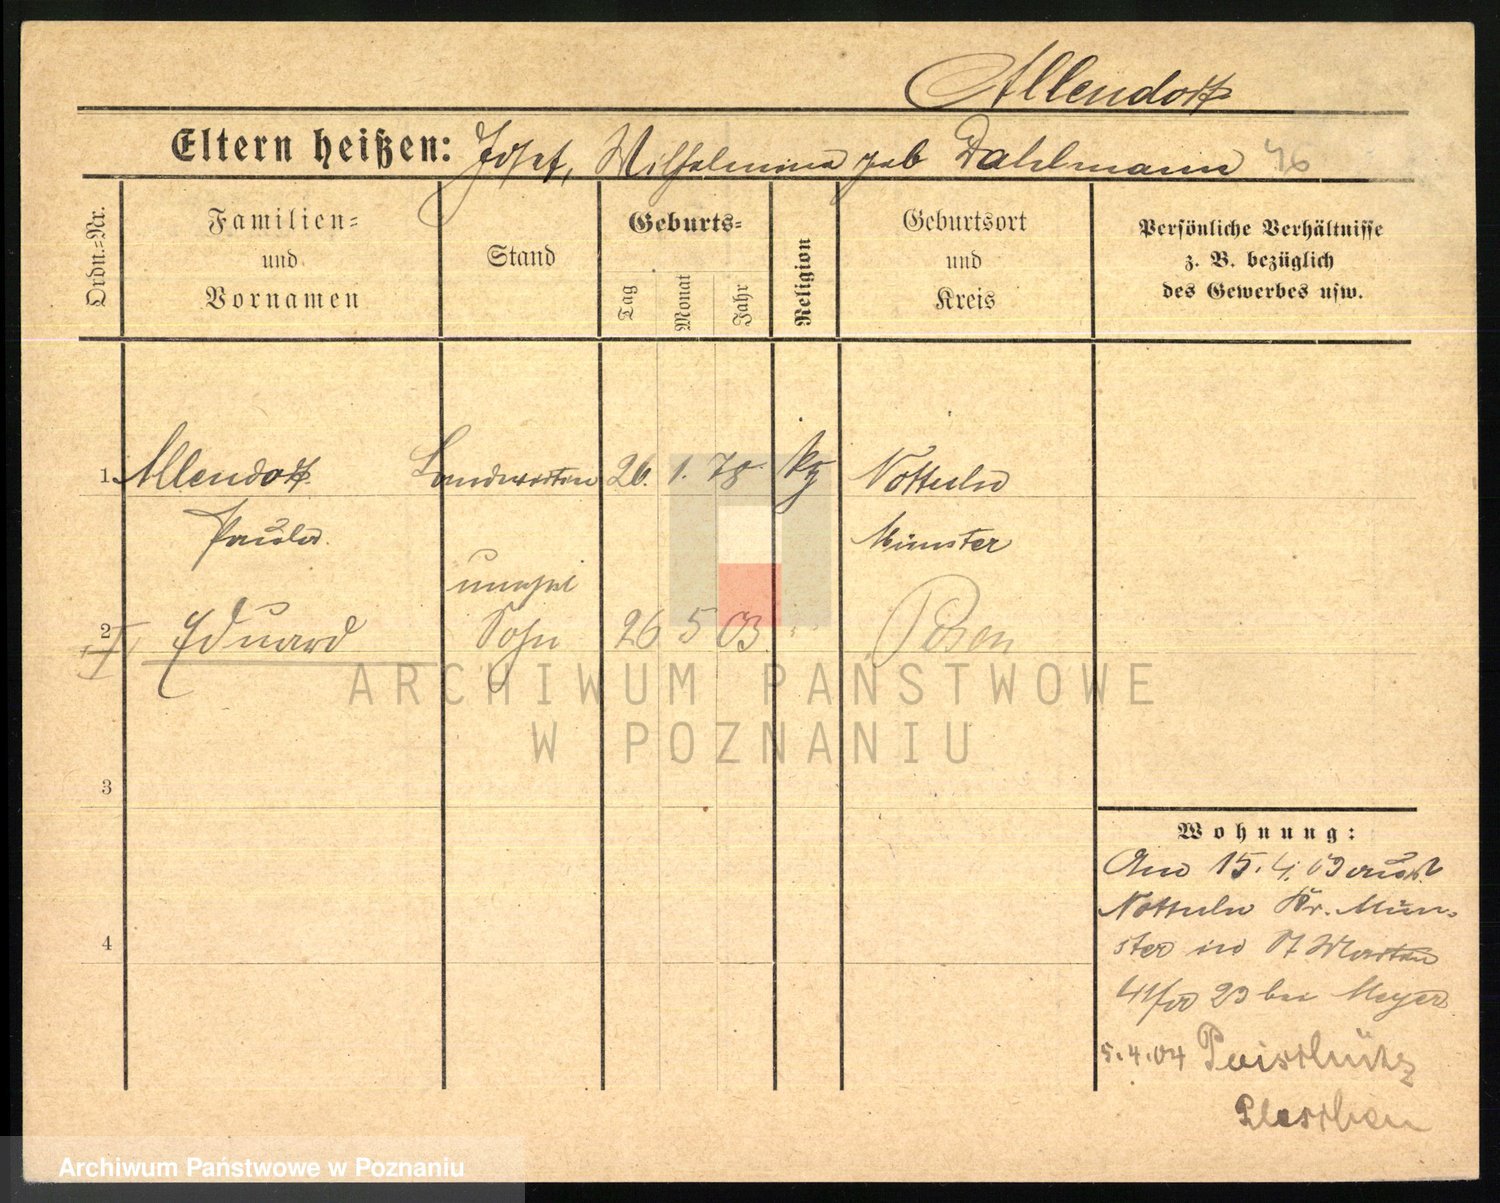 Allendorff
Eltern heißen: Josef, Wilhelmina geb Dahlmann 46
Ordn.=Nr.
Familien=
und
Vornamen
Stand
Geburts=
Tag
Monat
Jahr
Religion
Geburtsort
und
Kreis
Persönliche Verhältnisse
z. B. bezüglich
des Gewerbes usw.
1. Allendorff Landwirtin 26. 1. 78. Nottuln
Paula. Münster
unehel
2 Eduard Sohn 26 5 03. Posen
I
3
4
Wohnung:
15. 4. 03 aus
Nottuln Kr. Mün-
ster in St Martin
bei Meyer
5.4.04
Pleschen
ARCHIWUM PAŃSTWOWE
W POZNANIU
Archiwum Państwowe w Poznaniu